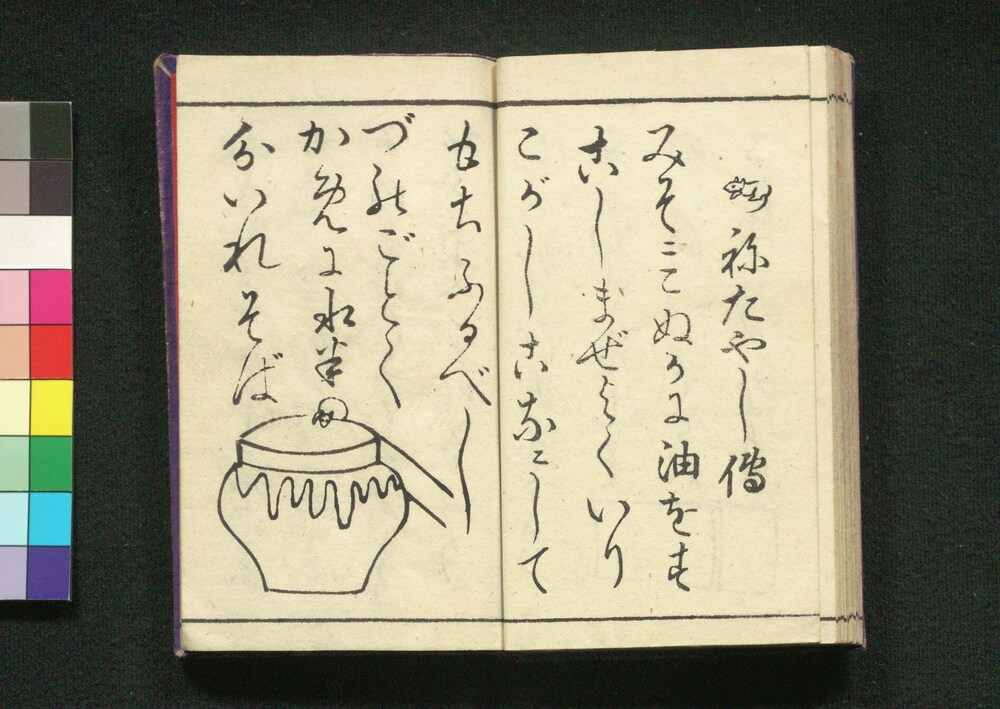 ねたやし傳
みそにこぬかに油をす
こしまぜよくいり
こがしこなにして
もちふるべし
づのごとく
かめに水半
分いれそば